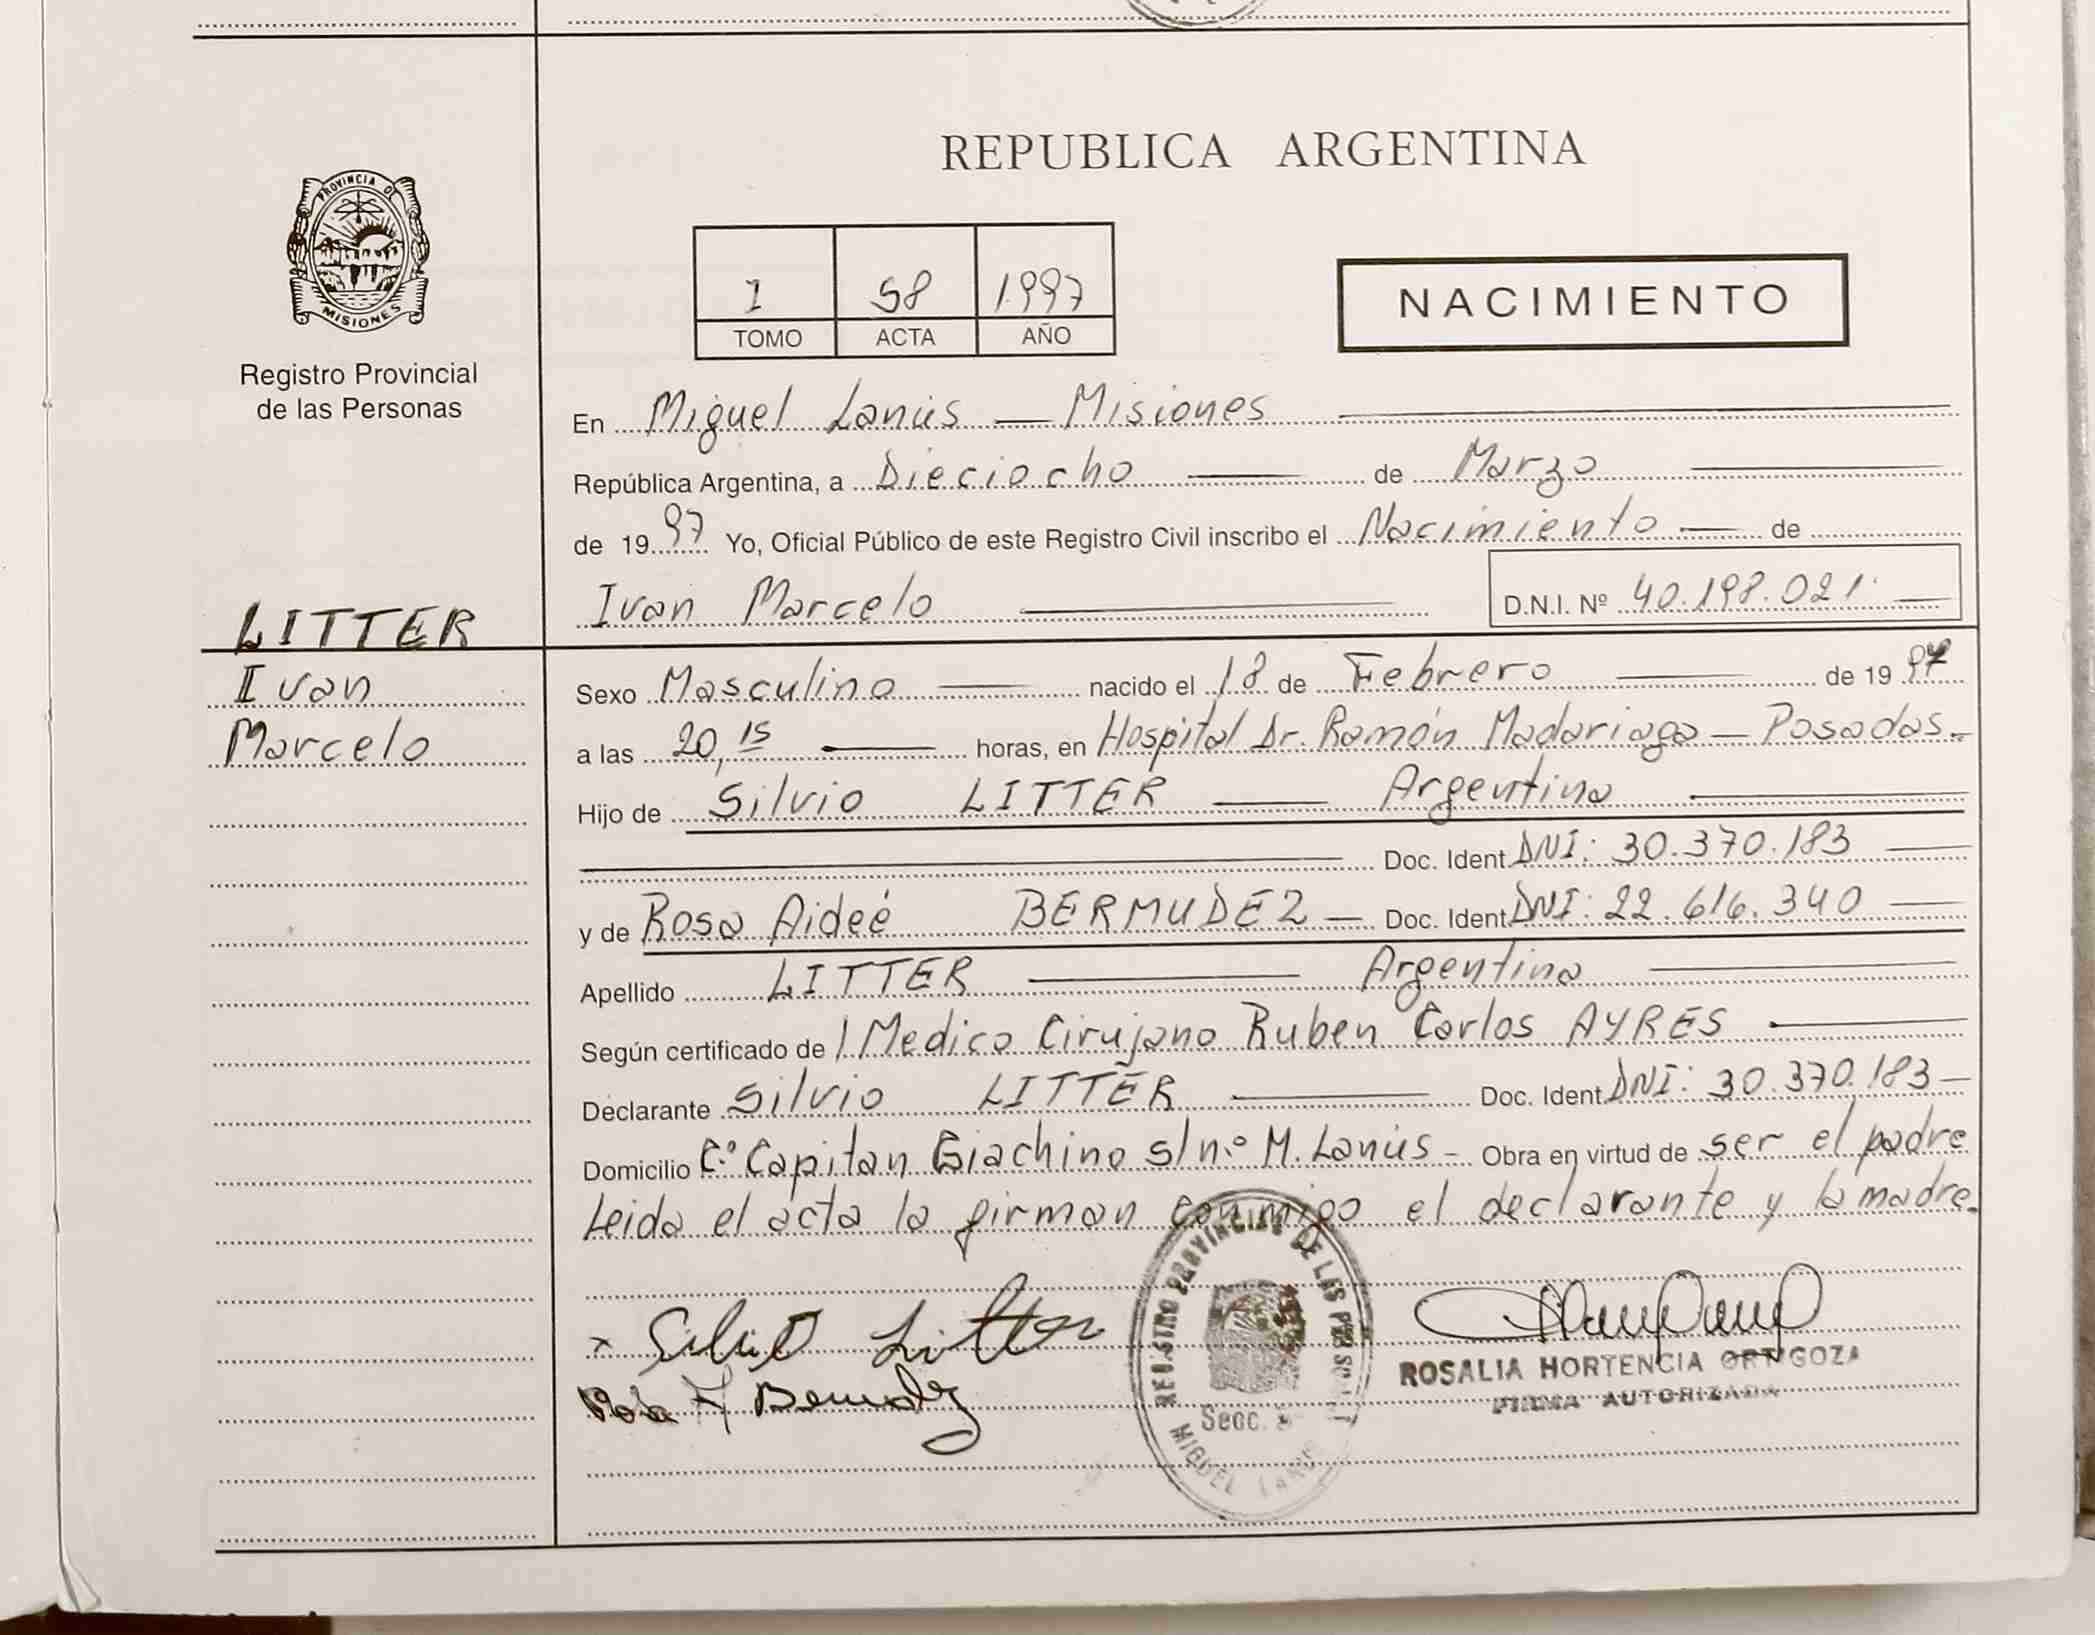 REPUBLICA ARGENTINA
PROVINCIA DE
MISIONES
Registro Provincial
de las Personas
1 58 1997
TOMO ACTA AÑO
NACIMIENTO
En Miguel Lanús — Misiones
República Argentina, a Dieciocho — de Marzo
de 1997 Yo, Oficial Público de este Registro Civil inscribo el Nacimiento — de
Ivan Marcelo D.N.I. Nº 40.198.021
LITTER
Ivan
Marcelo
Sexo Masculino — nacido el 18 de Febrero — de 1997
a las 20,15 — horas, en Hospital Dr. Ramón Madariaga — Posadas.-
Hijo de Silvio LITTER — Argentino
Doc. Ident DNI: 30.370.183
y de Rosa Aideé BERMUDEZ — Doc. Ident DNI: 22.616.340
Apellido LITTER — Argentina
Según certificado de 1 Medico Cirujano Ruben Carlos AYRES
Declarante Silvio LITTER — Doc. Ident DNI: 30.370.183 —
Domicilio Cº Capitan Giachino s/nº M. Lanús - Obra en virtud de ser el padre
Leida el acta la firman conmigo el declarante y la madre.
Silvio Litter
Rosa A Bermudez
REGISTRO PROVINCIAL DE LAS PERSONAS
Secc.
MIGUEL LANUS
ROSALIA HORTENCIA ORTIGOZA
FIRMA AUTORIZADA